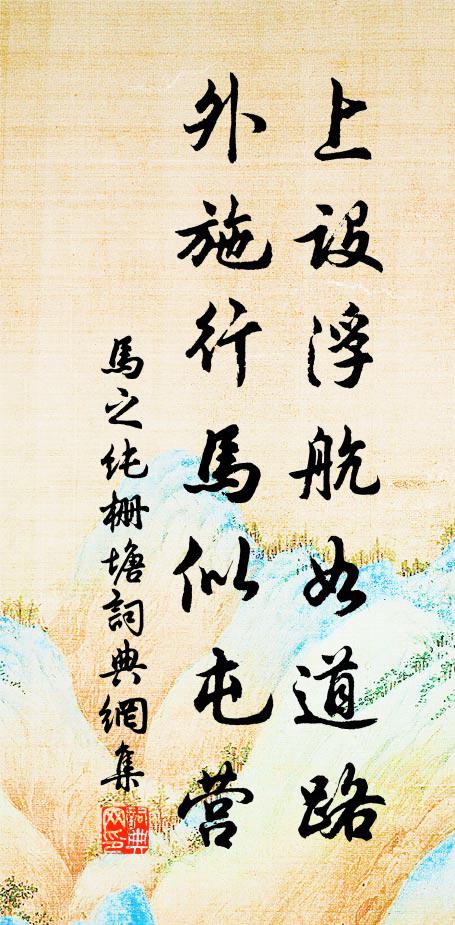 上設浮航如道路
外施行馬似屯營
馬之純柵塘詞典網集
詞典
网印